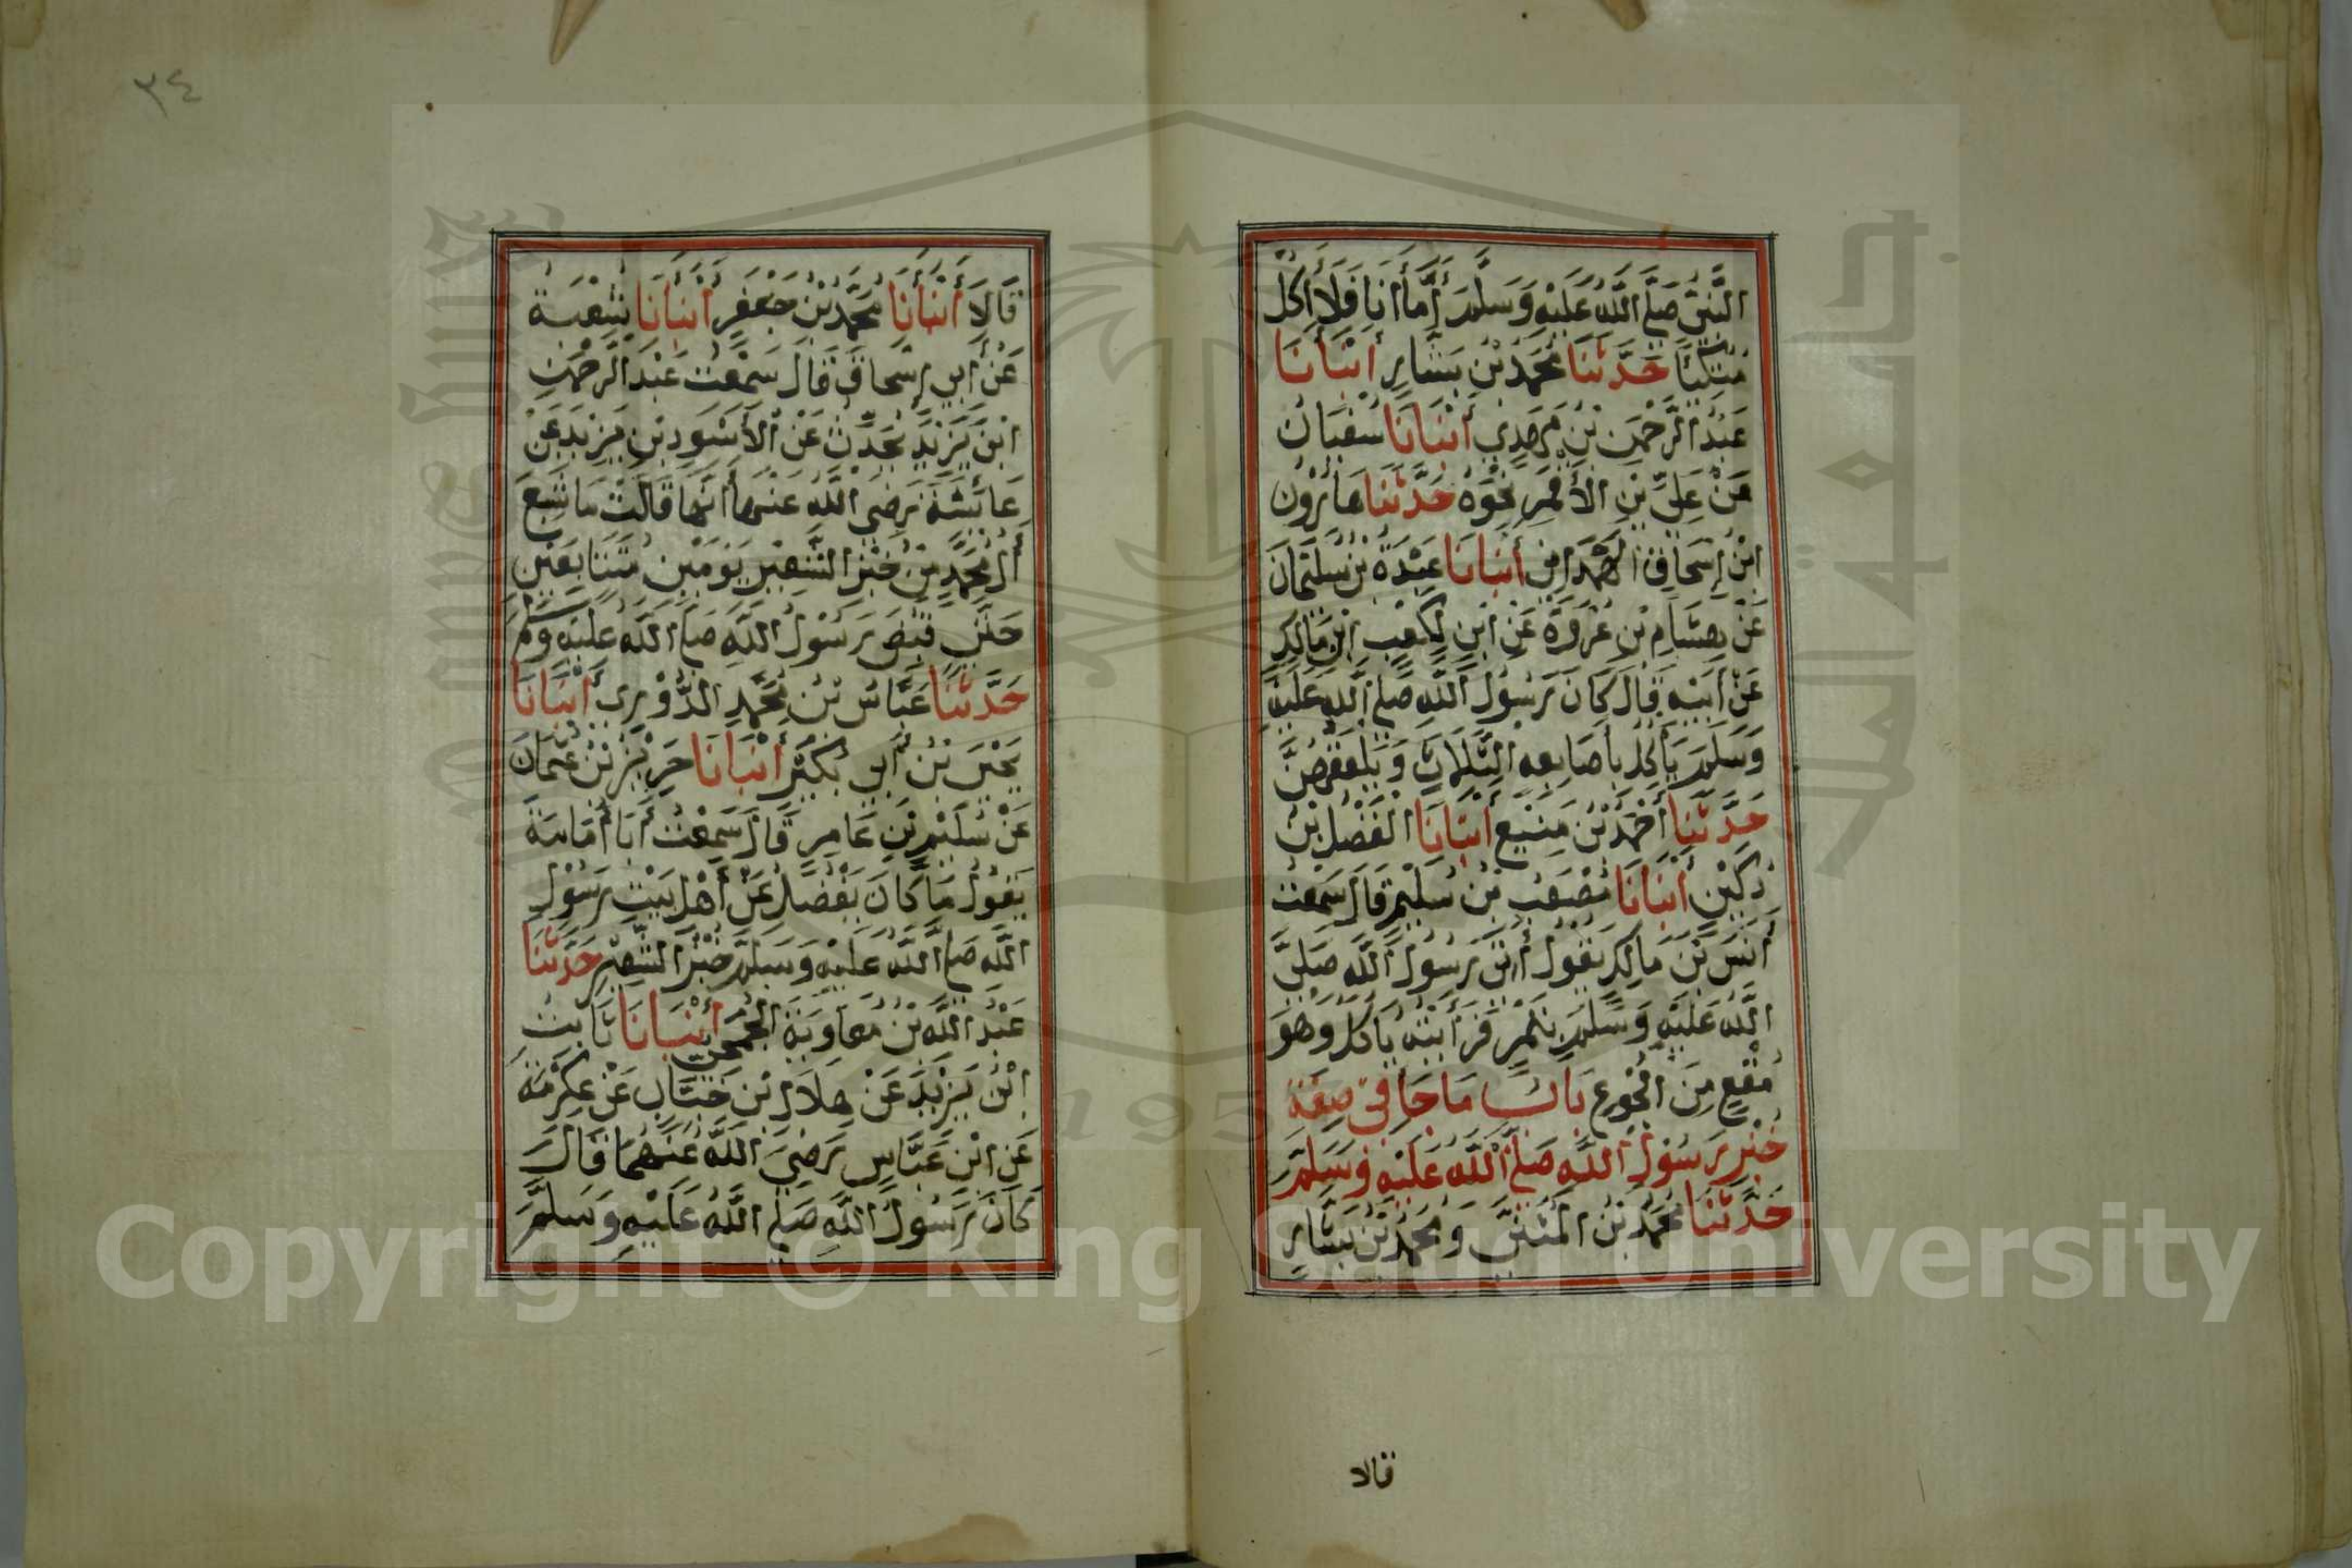 النَّبِيّ صَلَّى اللَّهُ عَلَيْهِ وَسَلَّمَ أَمَّا أَنَا فَلَا أَكُلُ
مُتَّكِئًا حَدَّثَنَا مُحَمَّدُ بْنُ بَشَّارٍ أَنْبَأَنَا
عَبْدُ الرَّحْمٰنِ بْنُ مَهْدِي أَنْبَأَنَا سُفْيَانُ
عَنْ عَلِيِّ بْنِ الْأَقْمَرِ نَحْوَهُ حَدَّثَنَا هَارُوْنُ
ابْنُ إِسْحَاقَ الْهَمْدَانِي أَنْبَأَنَا عَبْدَةُ بْنُ سُلَيْمَانَ
عَنْ هِشَامِ بْنِ عُرْوَةَ عَنِ ابْنٍ لِكَعْبِ ابْنِ مَالِكٍ
عَنْ أَبِيْهِ قَالَ كَانَ رَسُوْلُ اللَّهِ صَلَّى اللَّهُ عَلَيْهِ
وَسَلَّمَ يَأْكُلُ بِأَصَابِعِهِ الثَّلَاثِ وَيَلْعَقُهُنَّ
حَدَّثَنَا أَحْمَدُ بْنُ مَنِيْعٍ أَنْبَأَنَا الْفَضْلُ بْنُ
دُكَيْنٍ أَنْبَأَنَا مُصْعَبُ بْنُ سُلَيْمٍ قَالَ سَمِعْتُ
أَنَسَ بْنَ مَالِكٍ يَقُوْلُ أُتِيَ رَسُوْلُ اللَّهِ صَلَّى
اللَّهُ عَلَيْهِ وَسَلَّمَ بِتَمْرٍ فَرَأَيْتُهُ يَأْكُلُ وَهُوَ
مُقْعٍ مِنَ الْجُوْعِ بَابُ مَا جَا فِي صِفَةِ
خُبْزِ رَسُوْلِ اللَّهِ صَلَّى اللَّهُ عَلَيْهِ وَسَلَّمَ
حَدَّثَنَا مُحَمَّدُ بْنُ الْمُثَنَّى وَمُحَمَّدُ بْنُ بَشَّارٍ
قالا
٣٤
قَالَا أَنْبَأَنَا مُحَمَّدُ بْنُ جَعْفَرٍ أَنْبَأَنَا شُعْبَةُ
عَنْ أَبِي إِسْحَاقَ قَالَ سَمِعْتُ عَبْدَ الرَّحْمٰنِ
ابْنَ يَزِيْدَ يُحَدِّثُ عَنْ الْأَسْوَدِ بْنِ يَزِيْدَ عَنْ
عَائِشَةَ رَضِيَ اللَّهُ عَنْهَا أَنَّهَا قَالَتْ مَا شَبِعَ
أٰلُ مُحَمَّدٍ مِنْ خُبْزِ الشَّعِيْرِ يَوْمَيْنِ مُتَتَابِعَيْنِ
حَتَّى قُبِضَ رَسُوْلُ اللَّهِ صَلَّى اللَّهُ عَلَيْهِ وَسَلَّمَ
حَدَّثَنَا عَبَّاسُ بْنُ مُحَمَّدٍ الدُّوْرِي أَنْبَأَنَا
يَحْيَى بْنُ أَبِي بُكَيْرٍ أَنْبَأَنَا حَرِيْزُ بْنُ عُثْمَانَ
عَنْ سُلَيْمِ بْنِ عَامِرٍ قَالَ سَمِعْتُ أَبَا أُمَامَةَ
يَقُوْلُ مَا كَانَ يَفْضُلُ عَنْ أَهْلِ بَيْتِ رَسُوْلِ
اللَّهِ صَلَّى اللَّهُ عَلَيْهِ وَسَلَّمَ خُبْزُ الشَّعِيْرِ حَدَّثَنَا
عَبْدُ اللَّهِ بْنُ مُعَاوِيَةَ الْجُمَحِيُّ أَنْبَأَنَا ثَابِتُ
ابْنُ يَزِيْدَ عَنْ هِلَالِ بْنِ خَبَّابٍ عَنْ عِكْرِمَةَ
عَنِ ابْنِ عَبَّاسٍ رَضِيَ اللَّهُ عَنْهُمَا قَالَ
كَانَ رَسُوْلُ اللَّهِ صَلَّى اللَّهُ عَلَيْهِ وَسَلَّمَ
Copyright © King Saud University